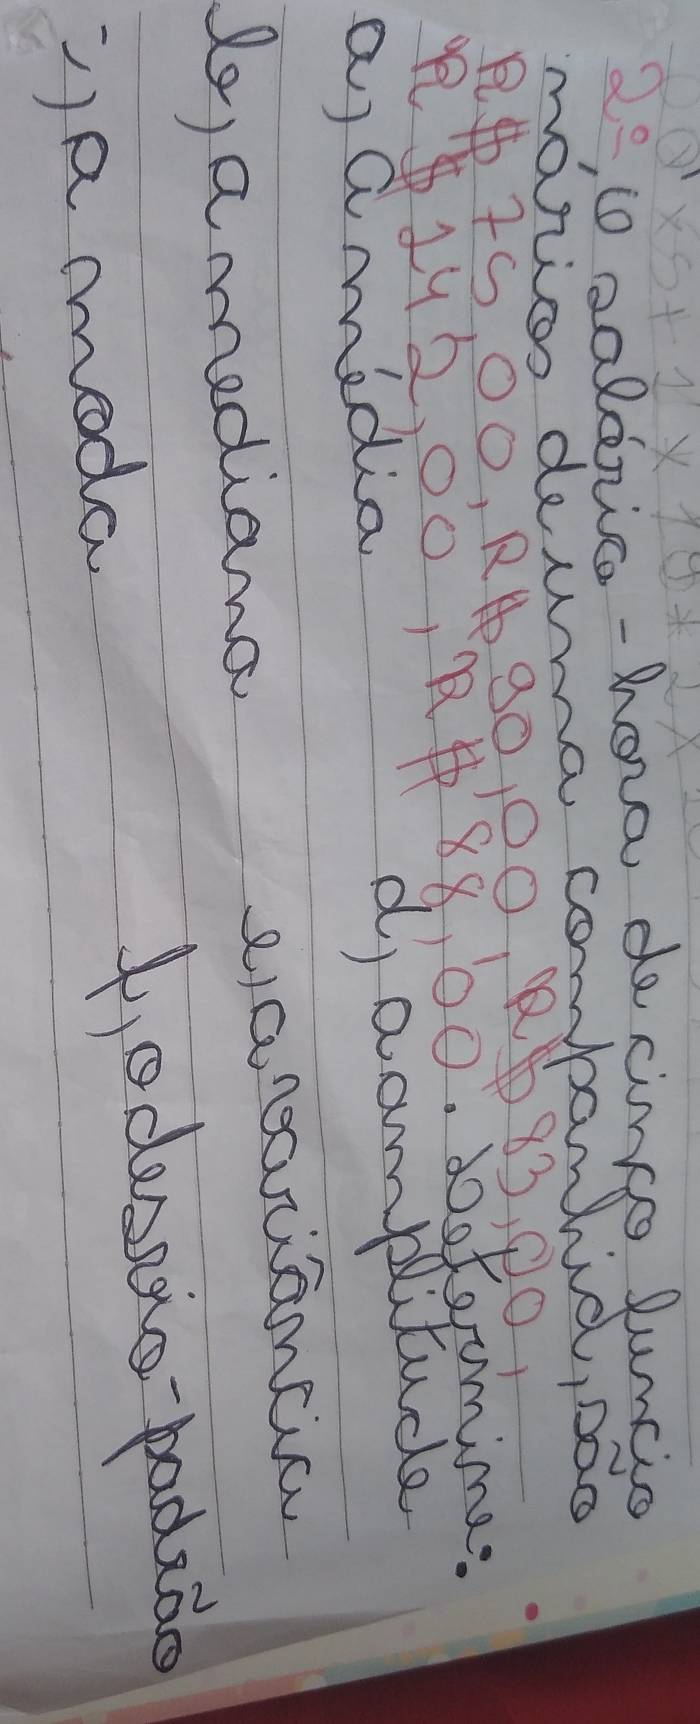 2º, O salário-hora de cinco funcio
nários de uma companhia, são
R$ 75,00, R$ 90,00, R$ 83,00,
R$ 142,00, R$ 88,00. Determine:
a, a média d, a amplitude
b, a mediana e, a variância
c, a moda f, o desvio-padrão